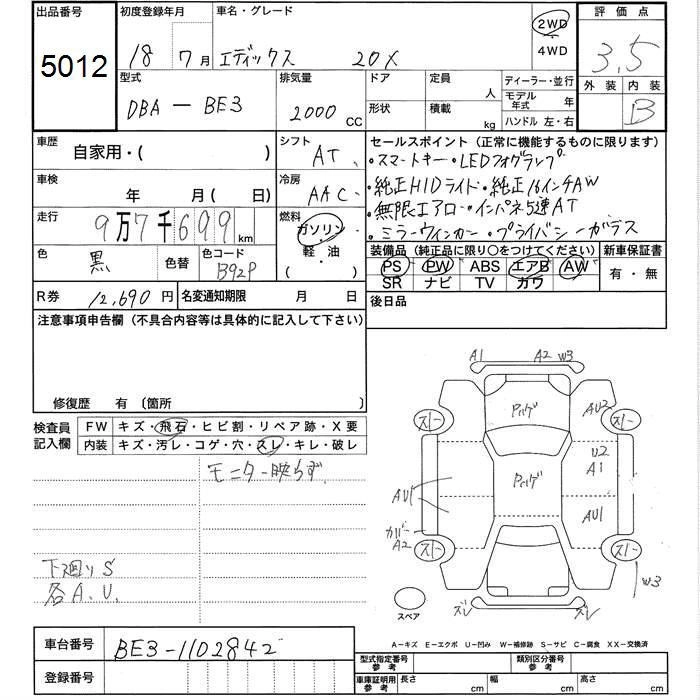 出品番号 初度登録年月 車名・グレード 評価点
5012 18 7月 エディックス 20X 2WD 4WD 3.5
型式 排気量 ドア 定員 人 ディーラー・並行 外装 内装
DBA－BE3 2000 CC 形状 積載 kg モデル年式 年 B
ハンドル 左・右
車歴 自家用・( ) シフト AT セールスポイント (正常に機能するものに限ります)
・スマートキー・LEDフォグランプ
車検 年 月 (日) 冷房 AAC ・純正HIDライト・純正16インチAW
走行 9万7千699km 燃料 ガソリン・軽・油 ・無限エアロ・インパネ5速AT
・ミラーウィンカー・プライバシーガラス
色 黒 色替 色コード B92P 装備品 (純正品に限り〇をつけてください) 新車保証書
PS PW ABS エアB AW 有・無
SR ナビ TV カワ
R券 12,690円 名変通知期限 月 日 後日品
注意事項申告欄 (不具合内容等は具体的に記入して下さい)
修復歴 有 (箇所 )
検査員記入欄 FW キズ・飛石・ヒビ割・リペア跡・X要
内装 キズ・汚レ・コゲ・穴・スレ・キレ・破レ
モニター映らず
下廻りS
各A.U.
A1 A2 W3
スレー AU2 スレー
U2
A1
AU1 AU1
カバー
A2 スレー スレー
W3
スペア ズレ ズレ
A－キズ E－エクボ U－凹み W－補修跡 S－サビ C－腐食 XX－交換済
車台番号 BE3-1102842
登録番号
型式指定番号 参考 類別区分番号 参考
車庫証明用 参考 長さ cm 幅 cm 高さ cm